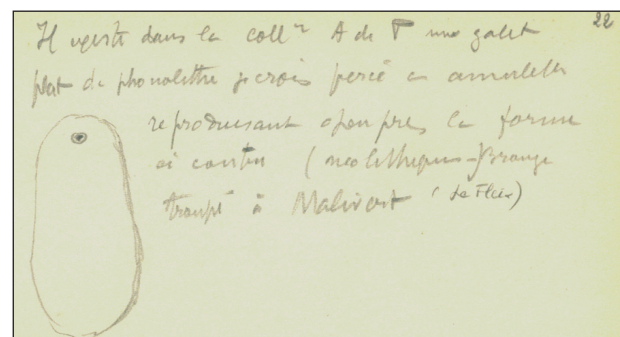 22
Il existe dans la coll^on A de T un galet
plat de phonolithe je crois percé en amulette
reproduisant à peu près la forme
ci contre (néolithique-Bronze
trouvé à Malivert (Le Fleix)